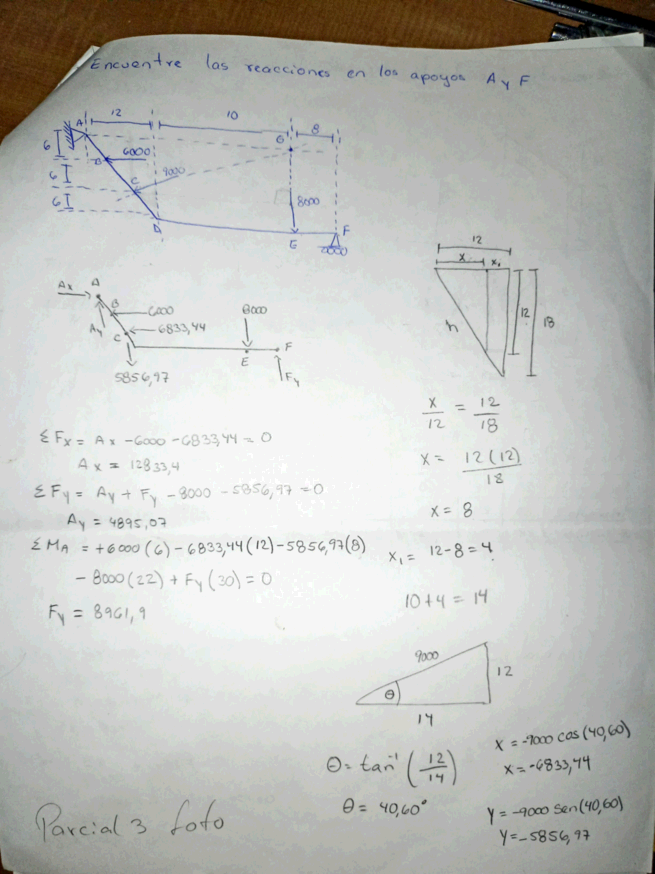 Encuentre las reacciones en los apoyos A y F
12 10 8
A
G
6
B 6000
6
C 9000
6
8000
D
E
F
12
x x₁
h
12 18
Ax A
B 6000
8000
Ay C 6833,44
E F
5856,97
Fy
x/12 = 12/18
x = 12(12)/18
x = 8
x₁ = 12-8 = 4
10+4 = 14
ΣFx = Ax -6000 -6833,44 = 0
Ax = 12833,4
ΣFy = Ay + Fy -8000 -5856,97 = 0
Ay = 4895,07
ΣMA = +6000(6) -6833,44(12) -5856,97(8)
-8000(22) + Fy(30) = 0
Fy = 8961,9
9000
θ
12
14
θ = tan⁻¹(12/14)
θ = 40,60°
x = -9000 cos(40,60)
x = -6833,44
y = -9000 sen(40,60)
y = -5856,97
Parcial 3 foto